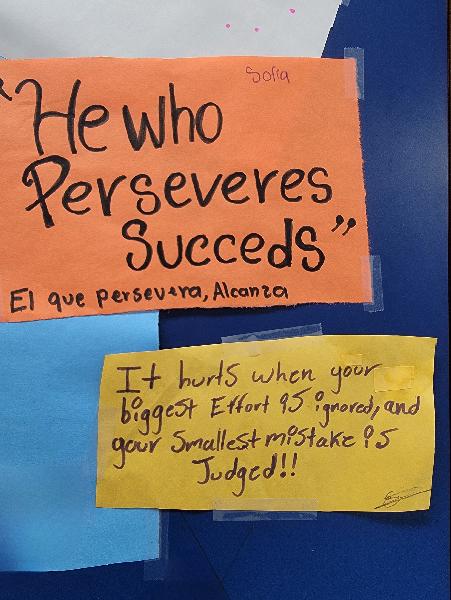 Sofia
"He who
Perseveres
Succeds"
El que persevera, Alcanza
It hurts when your
biggest Effort is ignored, and
your Smallest mistake is
Judged!!